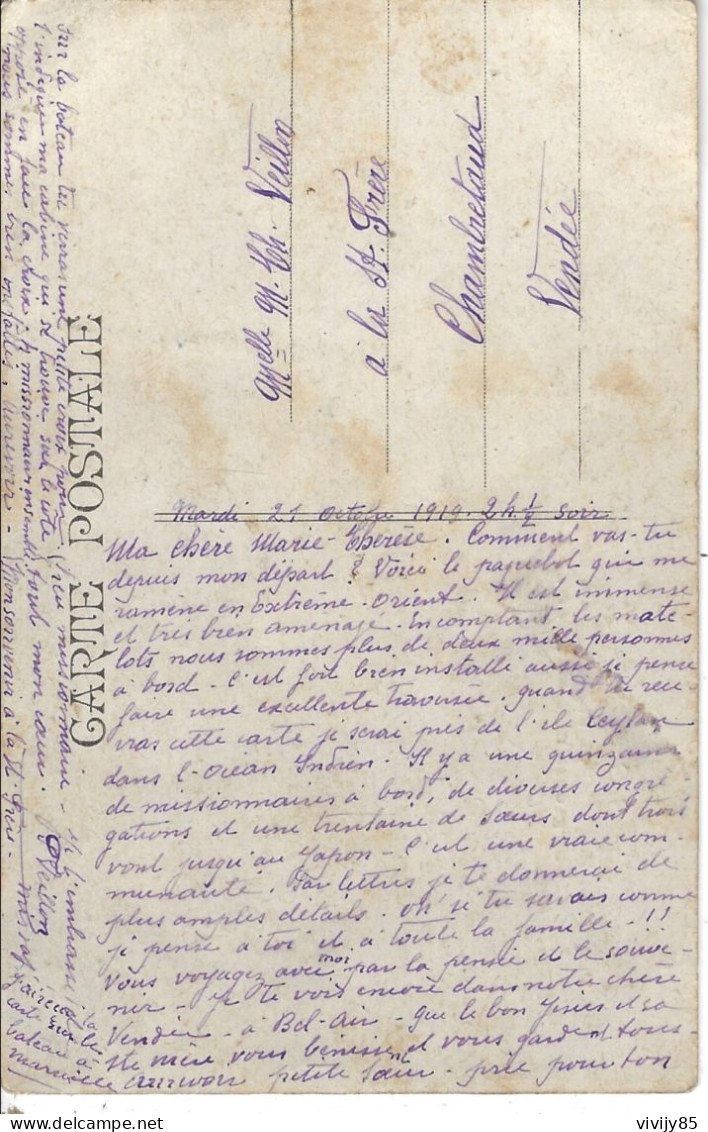 CARTE POSTALE
Melle M. Th. Veillon
à la St. Frère
Chambretaud
Vendée
Mardi 21 Octobre 1919. 2h ½ soir
Ma chère Marie-Thérèse. Comment vas-tu
depuis mon départ? Voici le paquebot qui me
ramène en Extrême-Orient. Il est immense
et très bien aménagé. En comptant les mate-
lots nous sommes plus de deux mille personnes
à bord. C'est fort bien installé aussi je pense
faire une excellente traversée. Quand tu rece-
vras cette carte je serai près de l'île Ceylan
dans l'Océan Indien. Il y a une quinzaine
de missionnaires à bord, de diverses congré-
gations et une trentaine de Sœurs dont trois
vont jusqu'au Japon - C'est une vraie com-
munauté. Par lettres je te donnerai de
plus amples détails. Oh! si tu savais comme
je pense à toi et à toute la famille - !!
Vous voyagez avec moi par la pensée et le souve-
nir - Je te vois encore dans notre chère
Vendée - à Bel-Air - que le bon Jésus et sa
Ste mère vous bénissent et vous gardent tous -
aurevoir petite Sœur - prie pour ton
Sur le bateau tu verras une petite croix pour
t'indiquer ma cabine qui se trouve sur le côté
opposé en face la croix. 4 missionnaires ensemble
nous sommes bien installés. Aurevoir -
Pieu missionnaire - qui t'embrasse
tout mon cœur.
Veillon
Mon souvenir à la St. Frère -
carte sur
bateau à
Marseille
vivijy85